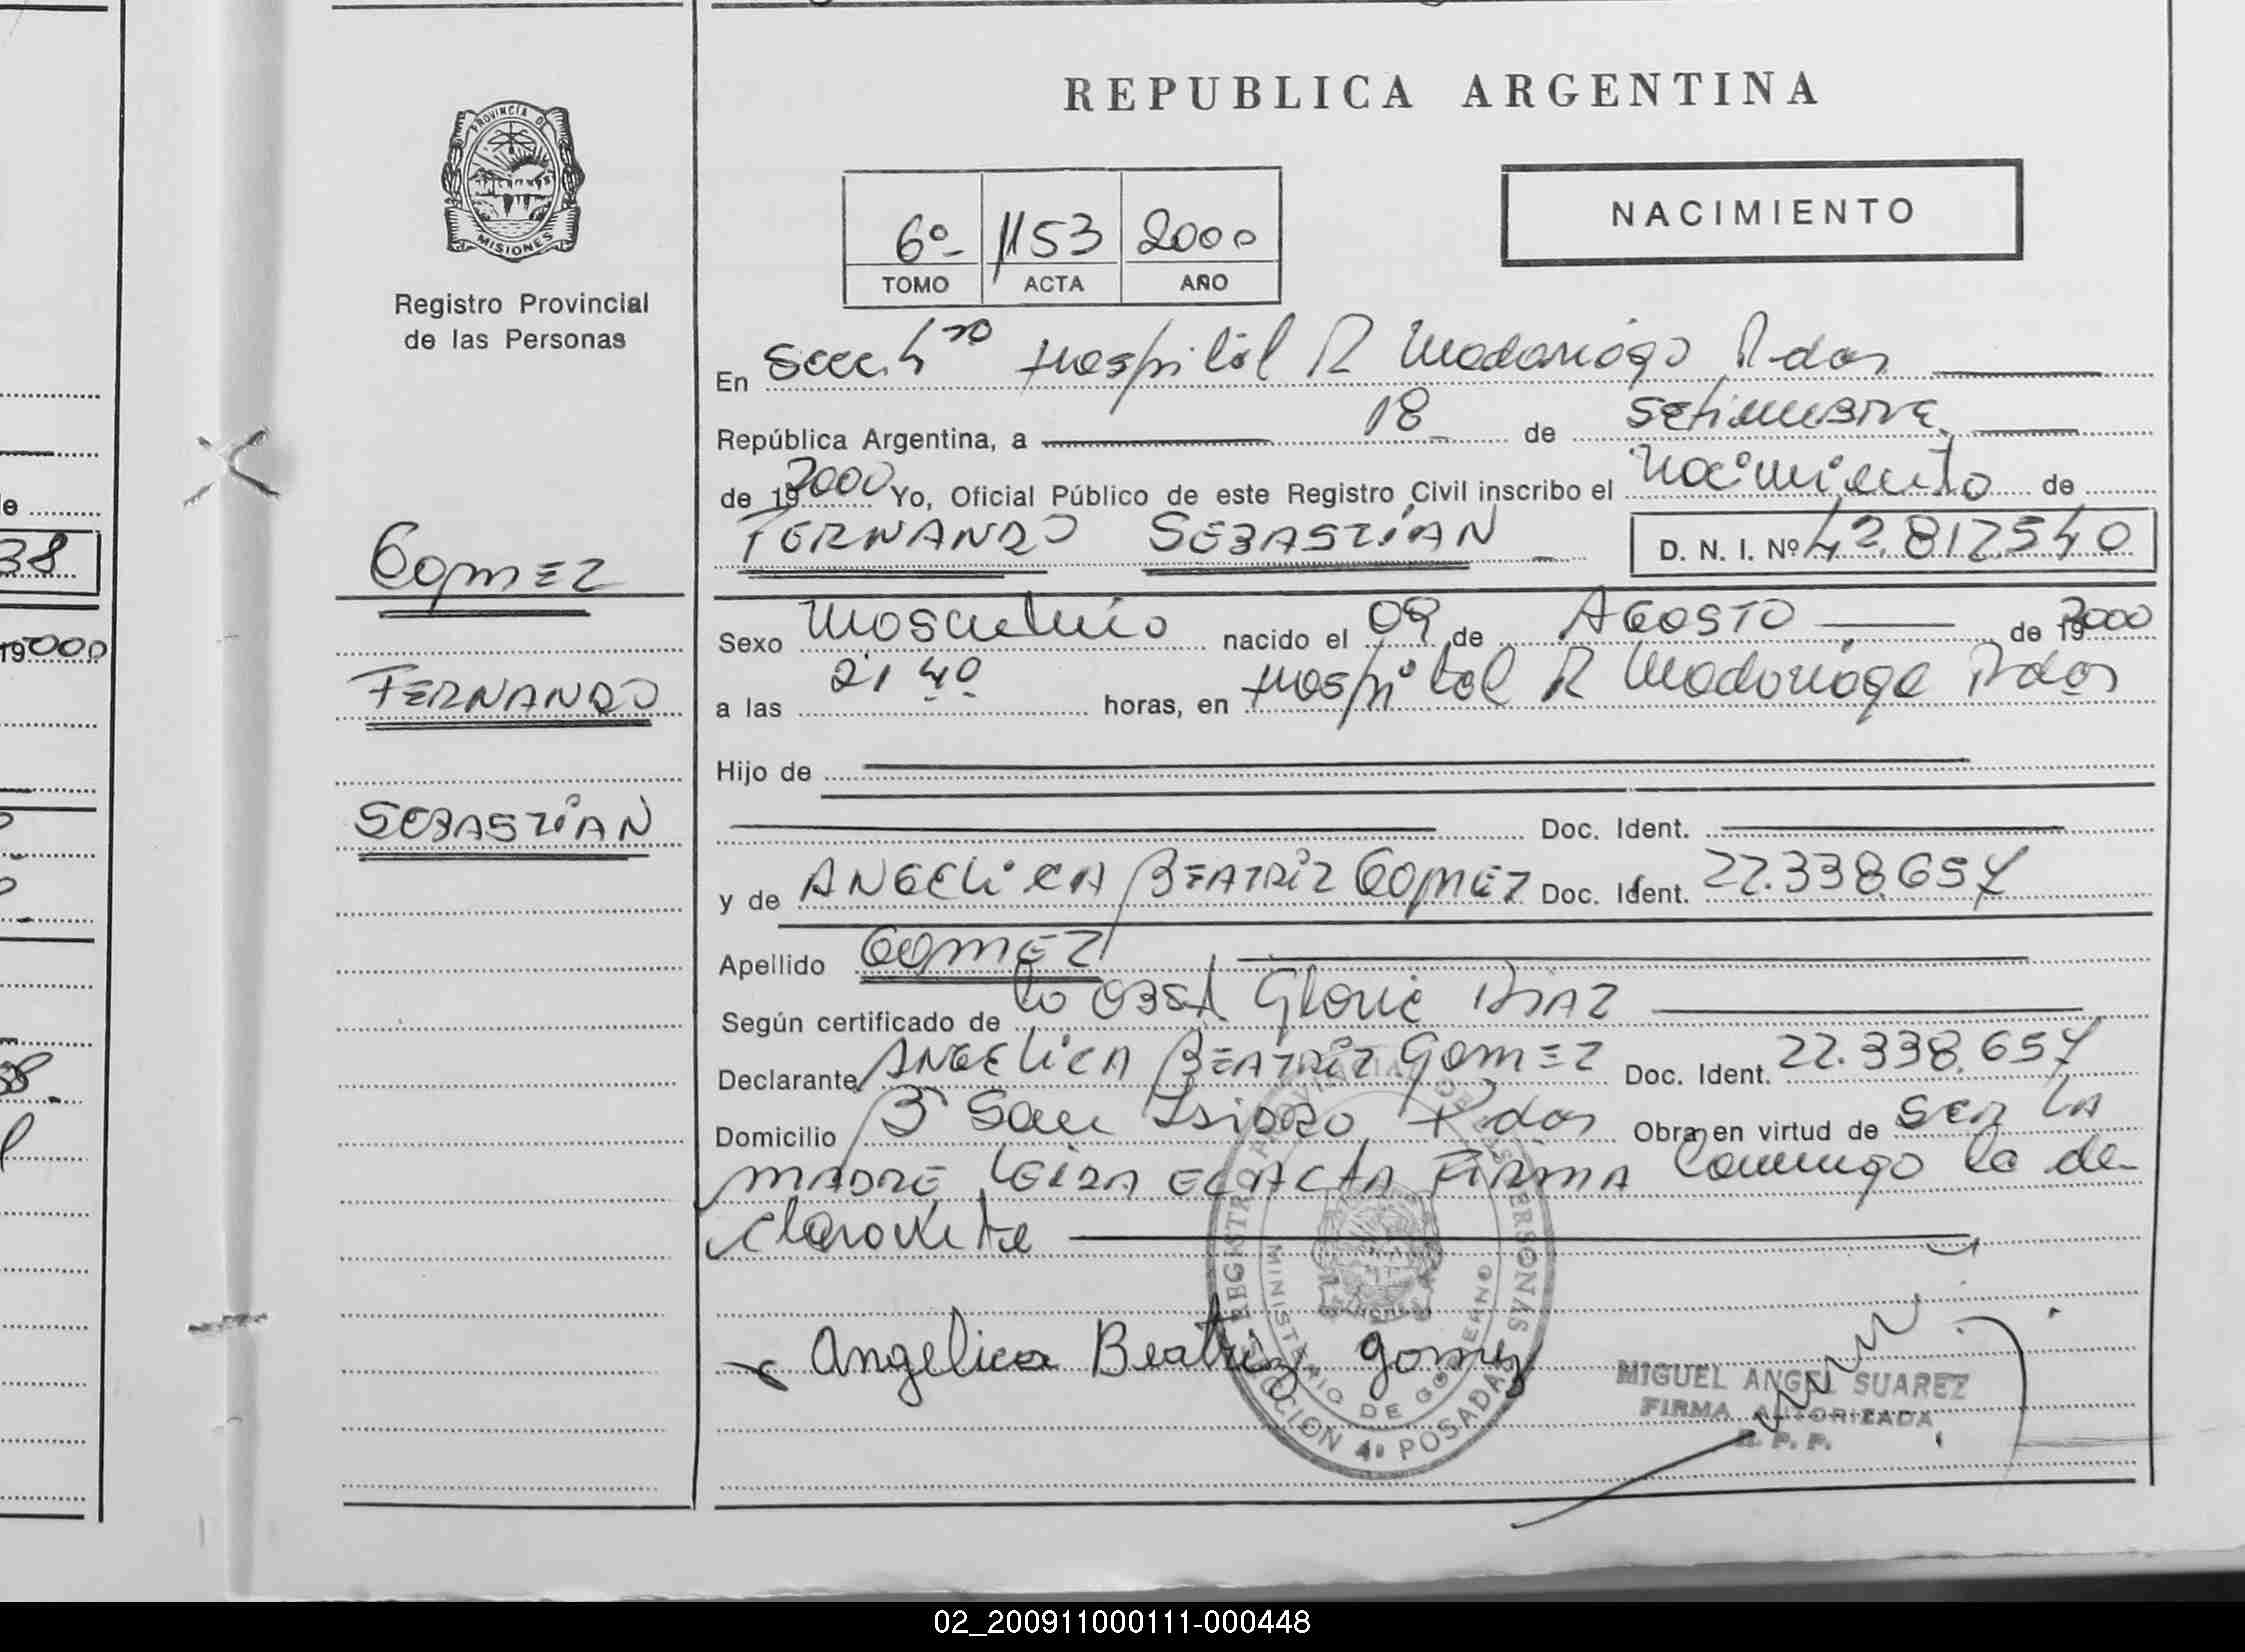 REPUBLICA ARGENTINA
PROVINCIA DE
MISIONES
Registro Provincial
de las Personas
6º 1153 2000
TOMO ACTA AÑO
NACIMIENTO
En Secc. 4ta Hospital R Madariaga Pdas
República Argentina, a 18 de Setiembre
de 19 2000 Yo, Oficial Público de este Registro Civil inscribo el Nacimiento de
FERNANDO SEBASTIÁN D. N. I. Nº 42.817.540
GOMEZ
FERNANDO
SEBASTIÁN
Sexo Masculino nacido el 09 de AGOSTO de 19 2000
a las 21 40 horas, en Hospital R Madariaga Pdas
Hijo de
Doc. Ident.
y de ANGELICA BEATRIZ GOMEZ Doc. Ident. 22.338.657
Apellido GOMEZ
Según certificado de la OBST Gloria DIAZ
Declarante ANGELICA BEATRIZ GOMEZ Doc. Ident. 22.338.657
Domicilio Bº San Isidro Pdas Obra en virtud de SER LA
MADRE LEIDA EL ACTA FIRMA Conmigo la de-
clarante
Angelica Beatriz gomez
REGISTRO PROVINCIAL DE LAS PERSONAS
MINISTERIO DE GOBIERNO
SECCION 4º POSADAS
MIGUEL ANGEL SUAREZ
FIRMA AUTORIZADA
R. P. P.
38
19 2000
02_200911000111-000448